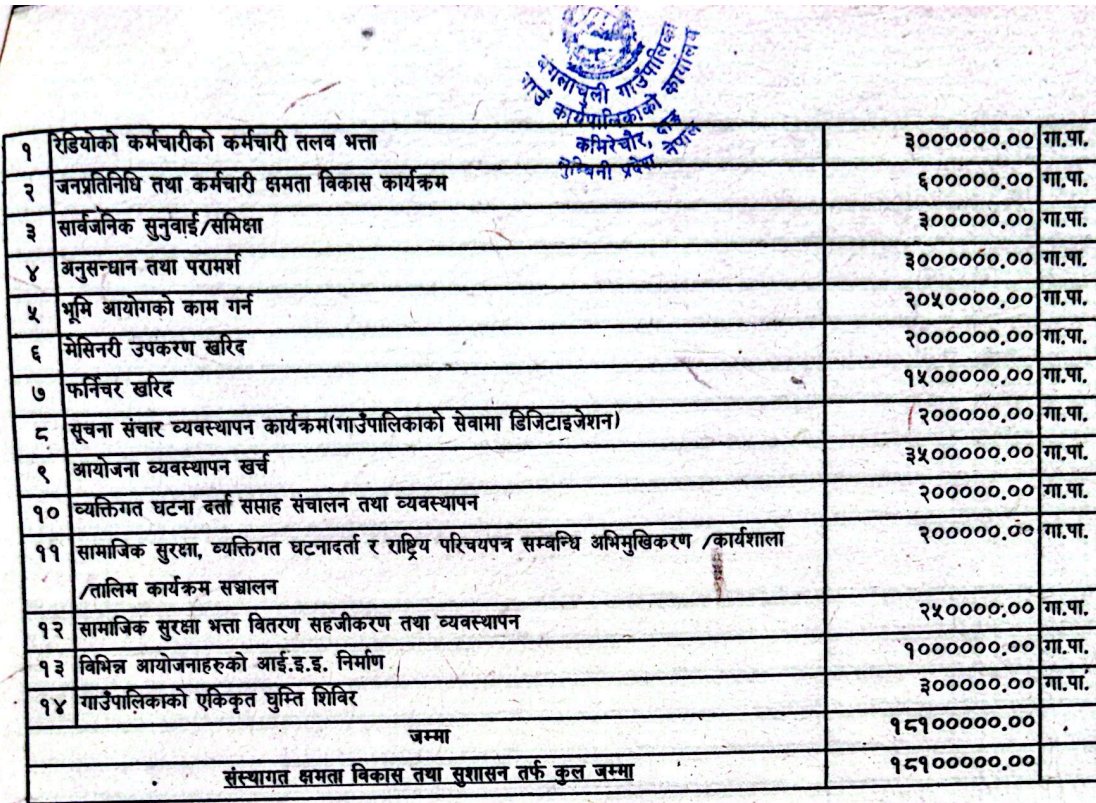 बंगलाचुली गाउँपालिका
गाउँ कार्यपालिकाको कार्यालय
कमिरेचौर, दाङ
लुम्बिनी प्रदेश नेपाल
१ रेडियोको कर्मचारीको कर्मचारी तलव भत्ता ३००००००.०० गा.पा.
२ जनप्रतिनिधि तथा कर्मचारी क्षमता विकास कार्यक्रम ६०००००.०० गा.पा.
३ सार्वजनिक सुनुवाई/समिक्षा ३०००००.०० गा.पा.
४ अनुसन्धान तथा परामर्श ३००००००.०० गा.पा.
५ भूमि आयोगको काम गर्न २०५००००.०० गा.पा.
६ मेसिनरी उपकरण खरिद २००००००.०० गा.पा.
७ फर्निचर खरिद १५०००००.०० गा.पा.
८ सूचना संचार व्यवस्थापन कार्यक्रम(गाउँपालिकाको सेवामा डिजिटाइजेशन) २०००००.०० गा.पा.
९ आयोजना व्यवस्थापन खर्च ३५०००००.०० गा.पा.
१० व्यक्तिगत घटना दर्ता सप्ताह संचालन तथा व्यवस्थापन २०००००.०० गा.पा.
११ सामाजिक सुरक्षा, व्यक्तिगत घटनादर्ता र राष्ट्रिय परिचयपत्र सम्बन्धि अभिमुखिकरण /कार्यशाला २०००००.०० गा.पा.
/तालिम कार्यक्रम सञ्चालन
१२ सामाजिक सुरक्षा भत्ता वितरण सहजीकरण तथा व्यवस्थापन २५००००.०० गा.पा.
१३ विभिन्न आयोजनाहरुको आई.इ.इ. निर्माण १००००००.०० गा.पा.
१४ गाउँपालिकाको एकिकृत घुम्ति शिविर ३०००००.०० गा.पा.
जम्मा १८१०००००.००
संस्थागत क्षमता विकास तथा सुशासन तर्फ कुल जम्मा १८१०००००.००